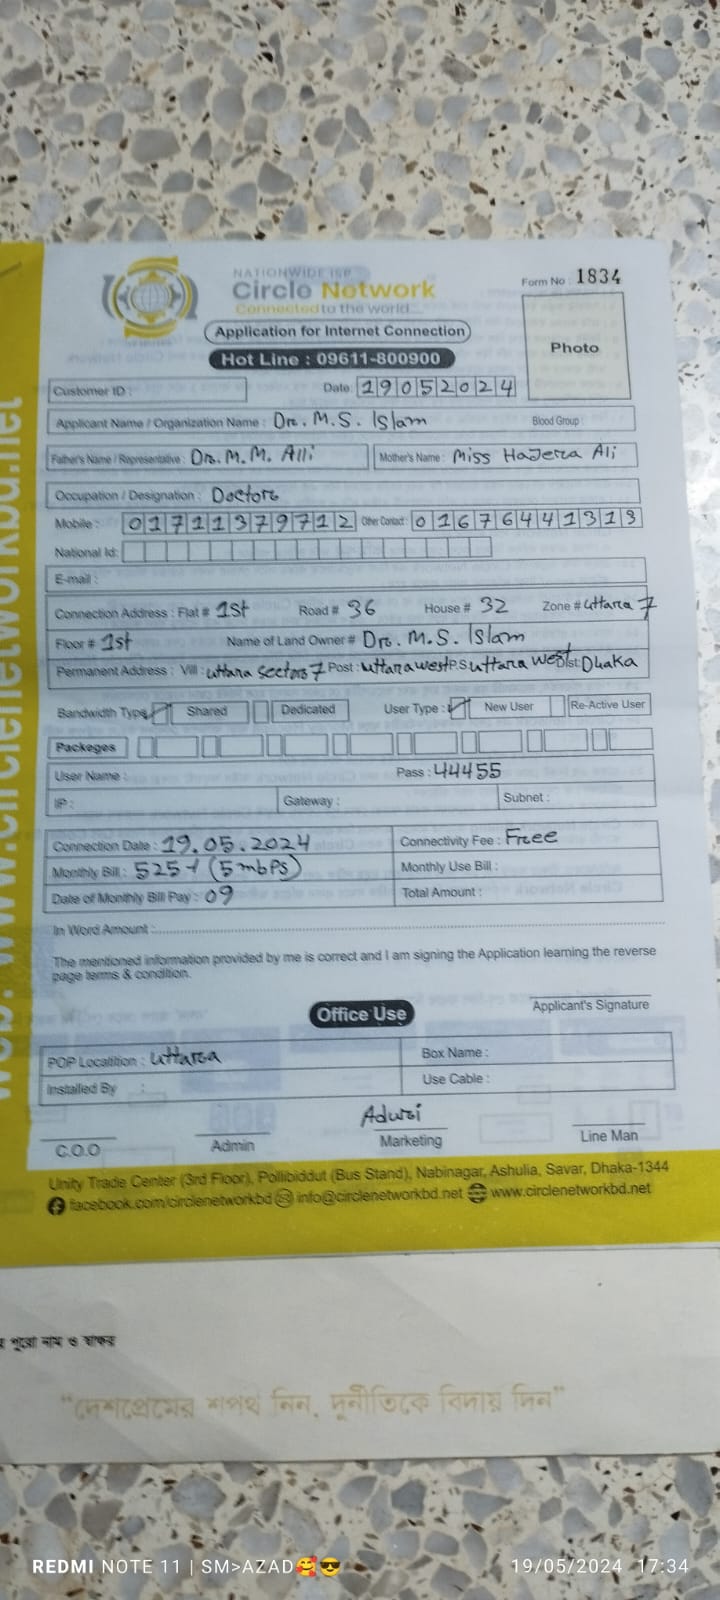 NATIONWIDE ISP
Circle Network
Connected to the world...
Form No : 1834
Application for Internet Connection
Hot Line : 09611-800900
Photo
Customer ID :
Date : 19052024
Applicant Name / Organization Name : Dr. M.S. Islam Blood Group :
Father's Name / Representative : Dr. M.M. Alli Mother's Name : Miss Hajera Ali
Occupation / Designation : Doctors
Mobile : 01711379712 Other Contact : 01676441313
National Id:
E-mail :
Connection Address : Flat # 1st Road # 36 House # 32 Zone # uttara 7
Floor # 1st Name of Land Owner # Dr. M.S. Islam
Permanent Address : Vill : uttara Sector 7 Post : uttara west P.S uttara west Dist: Dhaka
Bandwidth Type Shared Dedicated User Type : New User Re-Active User
Packeges
User Name : Pass : 44455
IP : Gateway : Subnet :
Connection Date : 19.05.2024 Connectivity Fee : Free
Monthly Bill : 525/- (5 mbps) Monthly Use Bill :
Date of Monthly Bill Pay : 09 Total Amount :
In Word Amount :
The mentioned information provided by me is correct and I am signing the Application learning the reverse
page terms & condition.
Applicant's Signature
Office Use
POP Localition : uttara Box Name :
Installed By : Use Cable :
Aduri
C.O.O Admin Marketing Line Man
Unity Trade Center (3rd Floor), Pollibiddut (Bus Stand), Nabinagar, Ashulia, Savar, Dhaka-1344
facebook.com/circlenetworkbd info@circlenetworkbd.net www.circlenetworkbd.net
web: www.circlenetworkbd.net
পুরো নাম ও স্বাক্ষর
"দেশপ্রেমের শপথ নিন, দুর্নীতিকে বিদায় দিন"
REDMI NOTE 11 | SM>AZAD🥰😎
19/05/2024 17:34